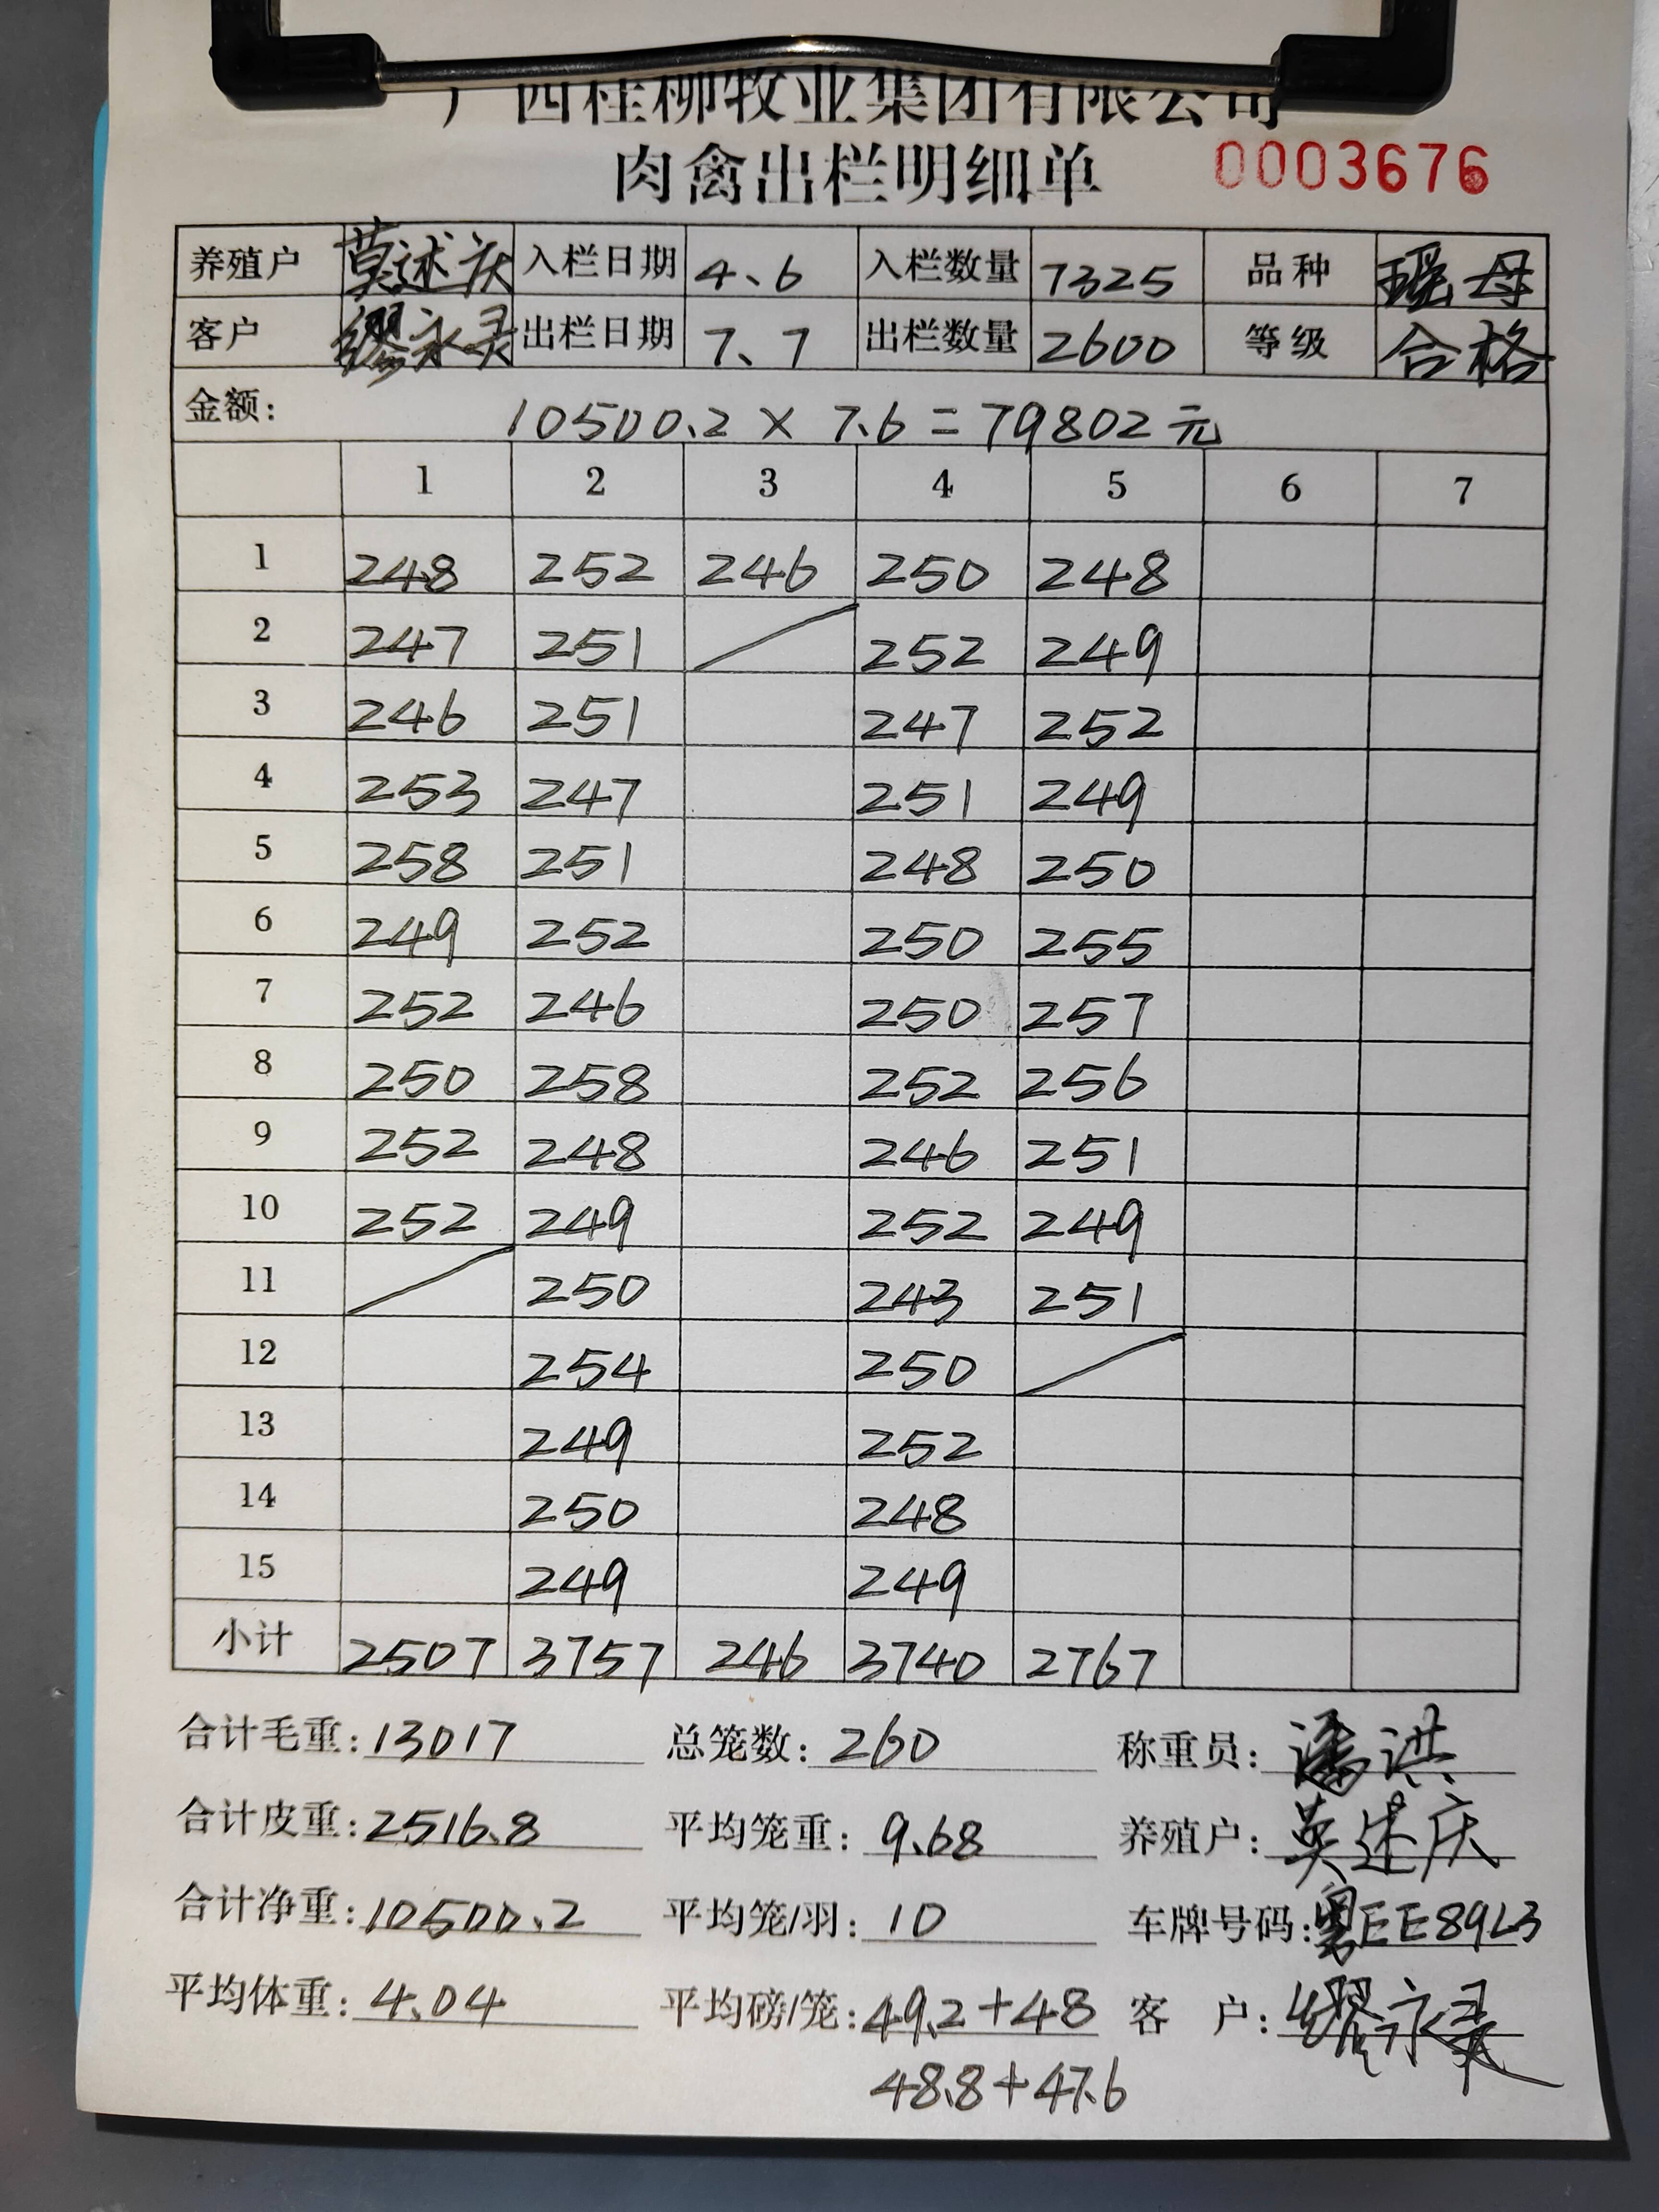 广西桂柳牧业集团有限公司
肉禽出栏明细单 0003676
养殖户 莫述庆 入栏日期 4.6 入栏数量 7325 品种 瑶母
客户 缪永录 出栏日期 7.7 出栏数量 2600 等级 合格
金额: 10500.2 × 7.6 = 79802元
1 2 3 4 5 6 7
1 248 252 246 250 248
2 247 251 / 252 249
3 246 251 247 252
4 253 247 251 249
5 258 251 248 250
6 249 252 250 255
7 252 246 250 257
8 250 258 252 256
9 252 248 246 251
10 252 249 252 249
11 / 250 243 251
12 254 250 /
13 249 252
14 250 248
15 249 249
小计 2507 3757 246 3740 2767
合计毛重: 13017 总笼数: 260 称重员: 潘洪
合计皮重: 2516.8 平均笼重: 9.68 养殖户: 莫述庆
合计净重: 10500.2 平均笼/羽: 10 车牌号码: 粤EE89L3
平均体重: 4.04 平均磅/笼: 49.2+48 客 户: 缪永录
48.8+47.6